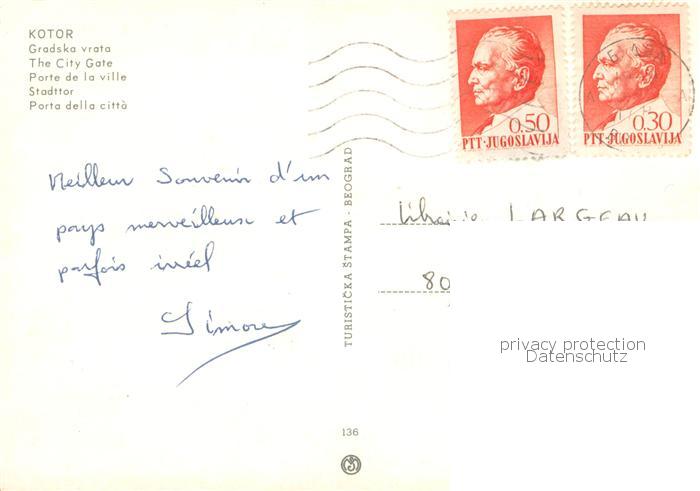 KOTOR
Gradska vrata
The City Gate
Porte de la ville
Stadttor
Porta della città
0.50
PTT·JUGOSLAVIJA
0.30
PTT·JUGOSLAVIJA
Meilleur Souvenir d'un
pays merveilleux et
parfois irréel
Simone
TURISTIČKA ŠTAMPA - BEOGRAD
Librairie LARGEAU
80
privacy protection
Datenschutz
136